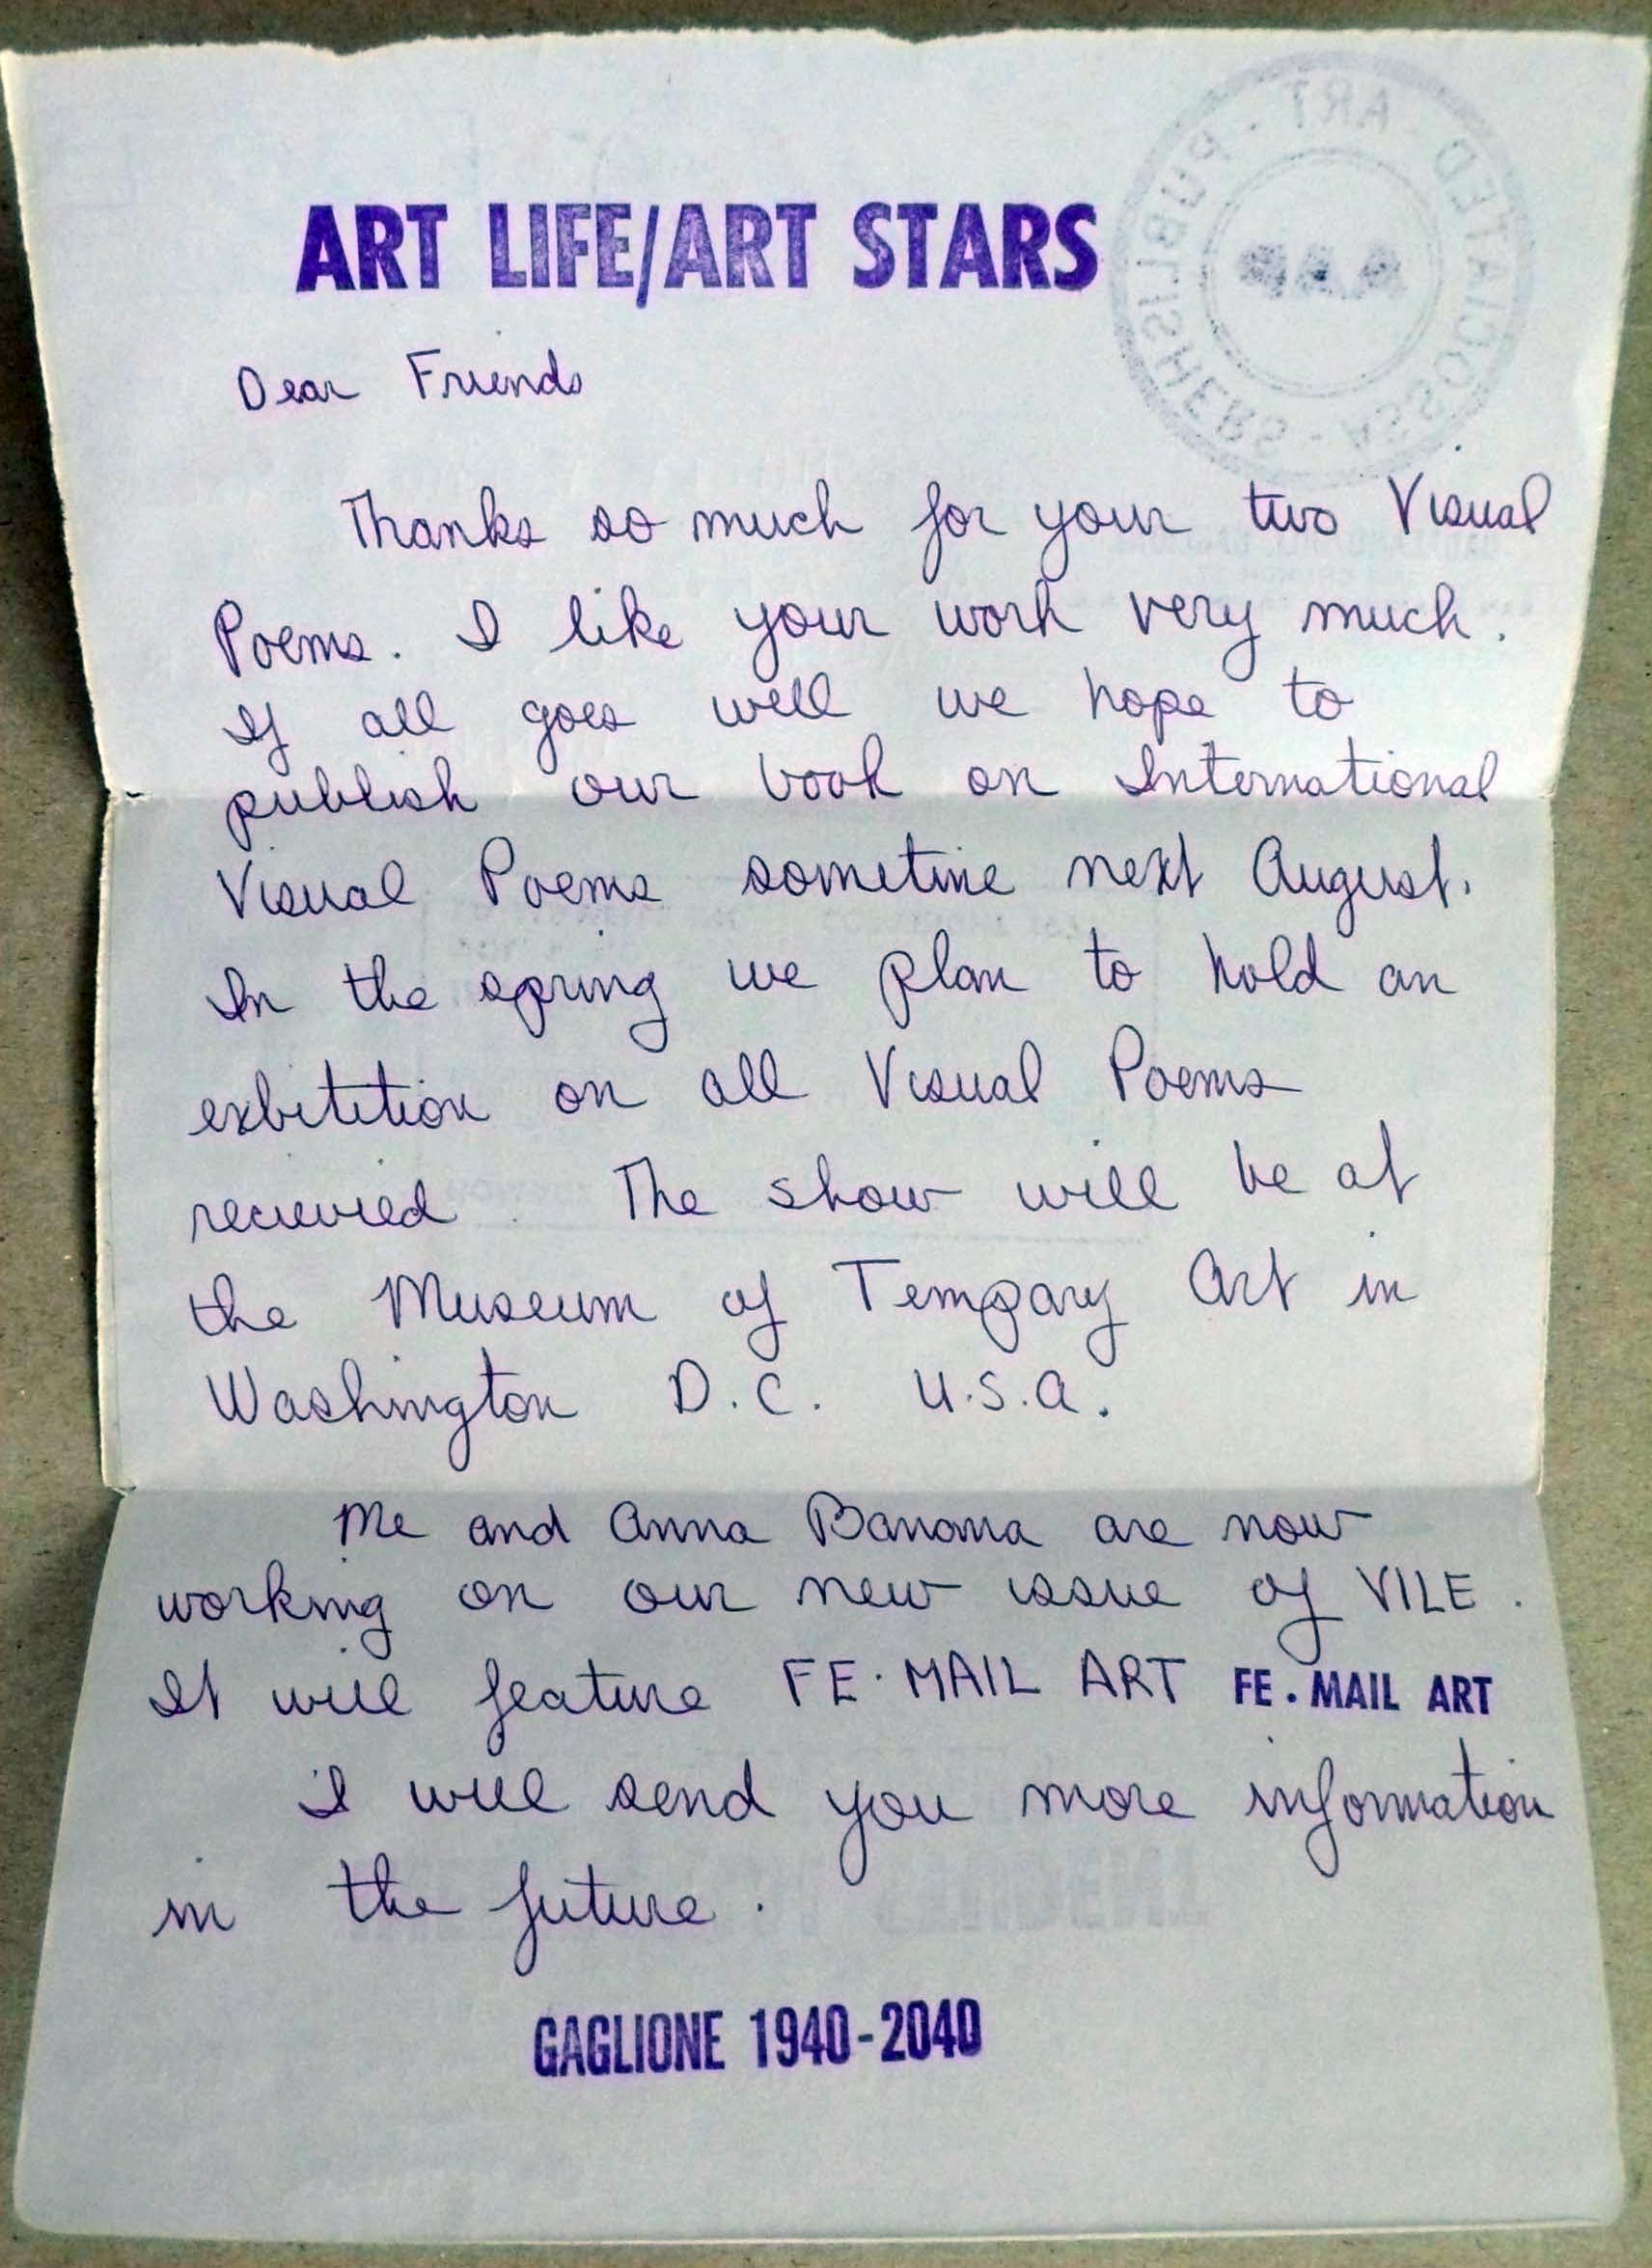 ART LIFE/ART STARS
ASSOCIATED · ART · PUBLISHERS ·
AAP
Dear Friends
Thanks so much for your two Visual
Poems. I like your work very much.
If all goes well we hope to
publish our book on International
Visual Poems sometime next August.
In the spring we plan to hold an
exbitition on all Visual Poems
recievied. The show will be at
the Museum of Tempary Art in
Washington D.C. U.S.A.
Me and Anna Banana are now
working on our new issue of VILE.
It will feature FE·MAIL ART FE.MAIL ART
I will send you more information
in the future.
GAGLIONE 1940-2040